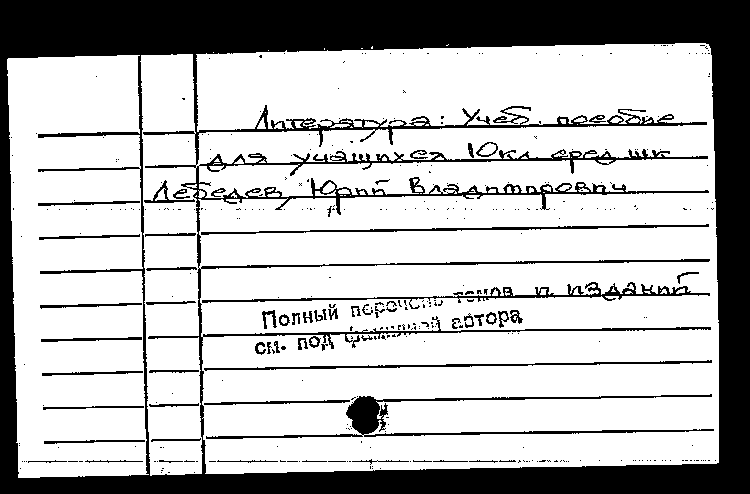 Литература: Учеб. пособие
для учащихся 10кл. сред. шк
Лебедев, Юрий Владимирович
Полный перечень томов и изданий
см. под фамилией автора